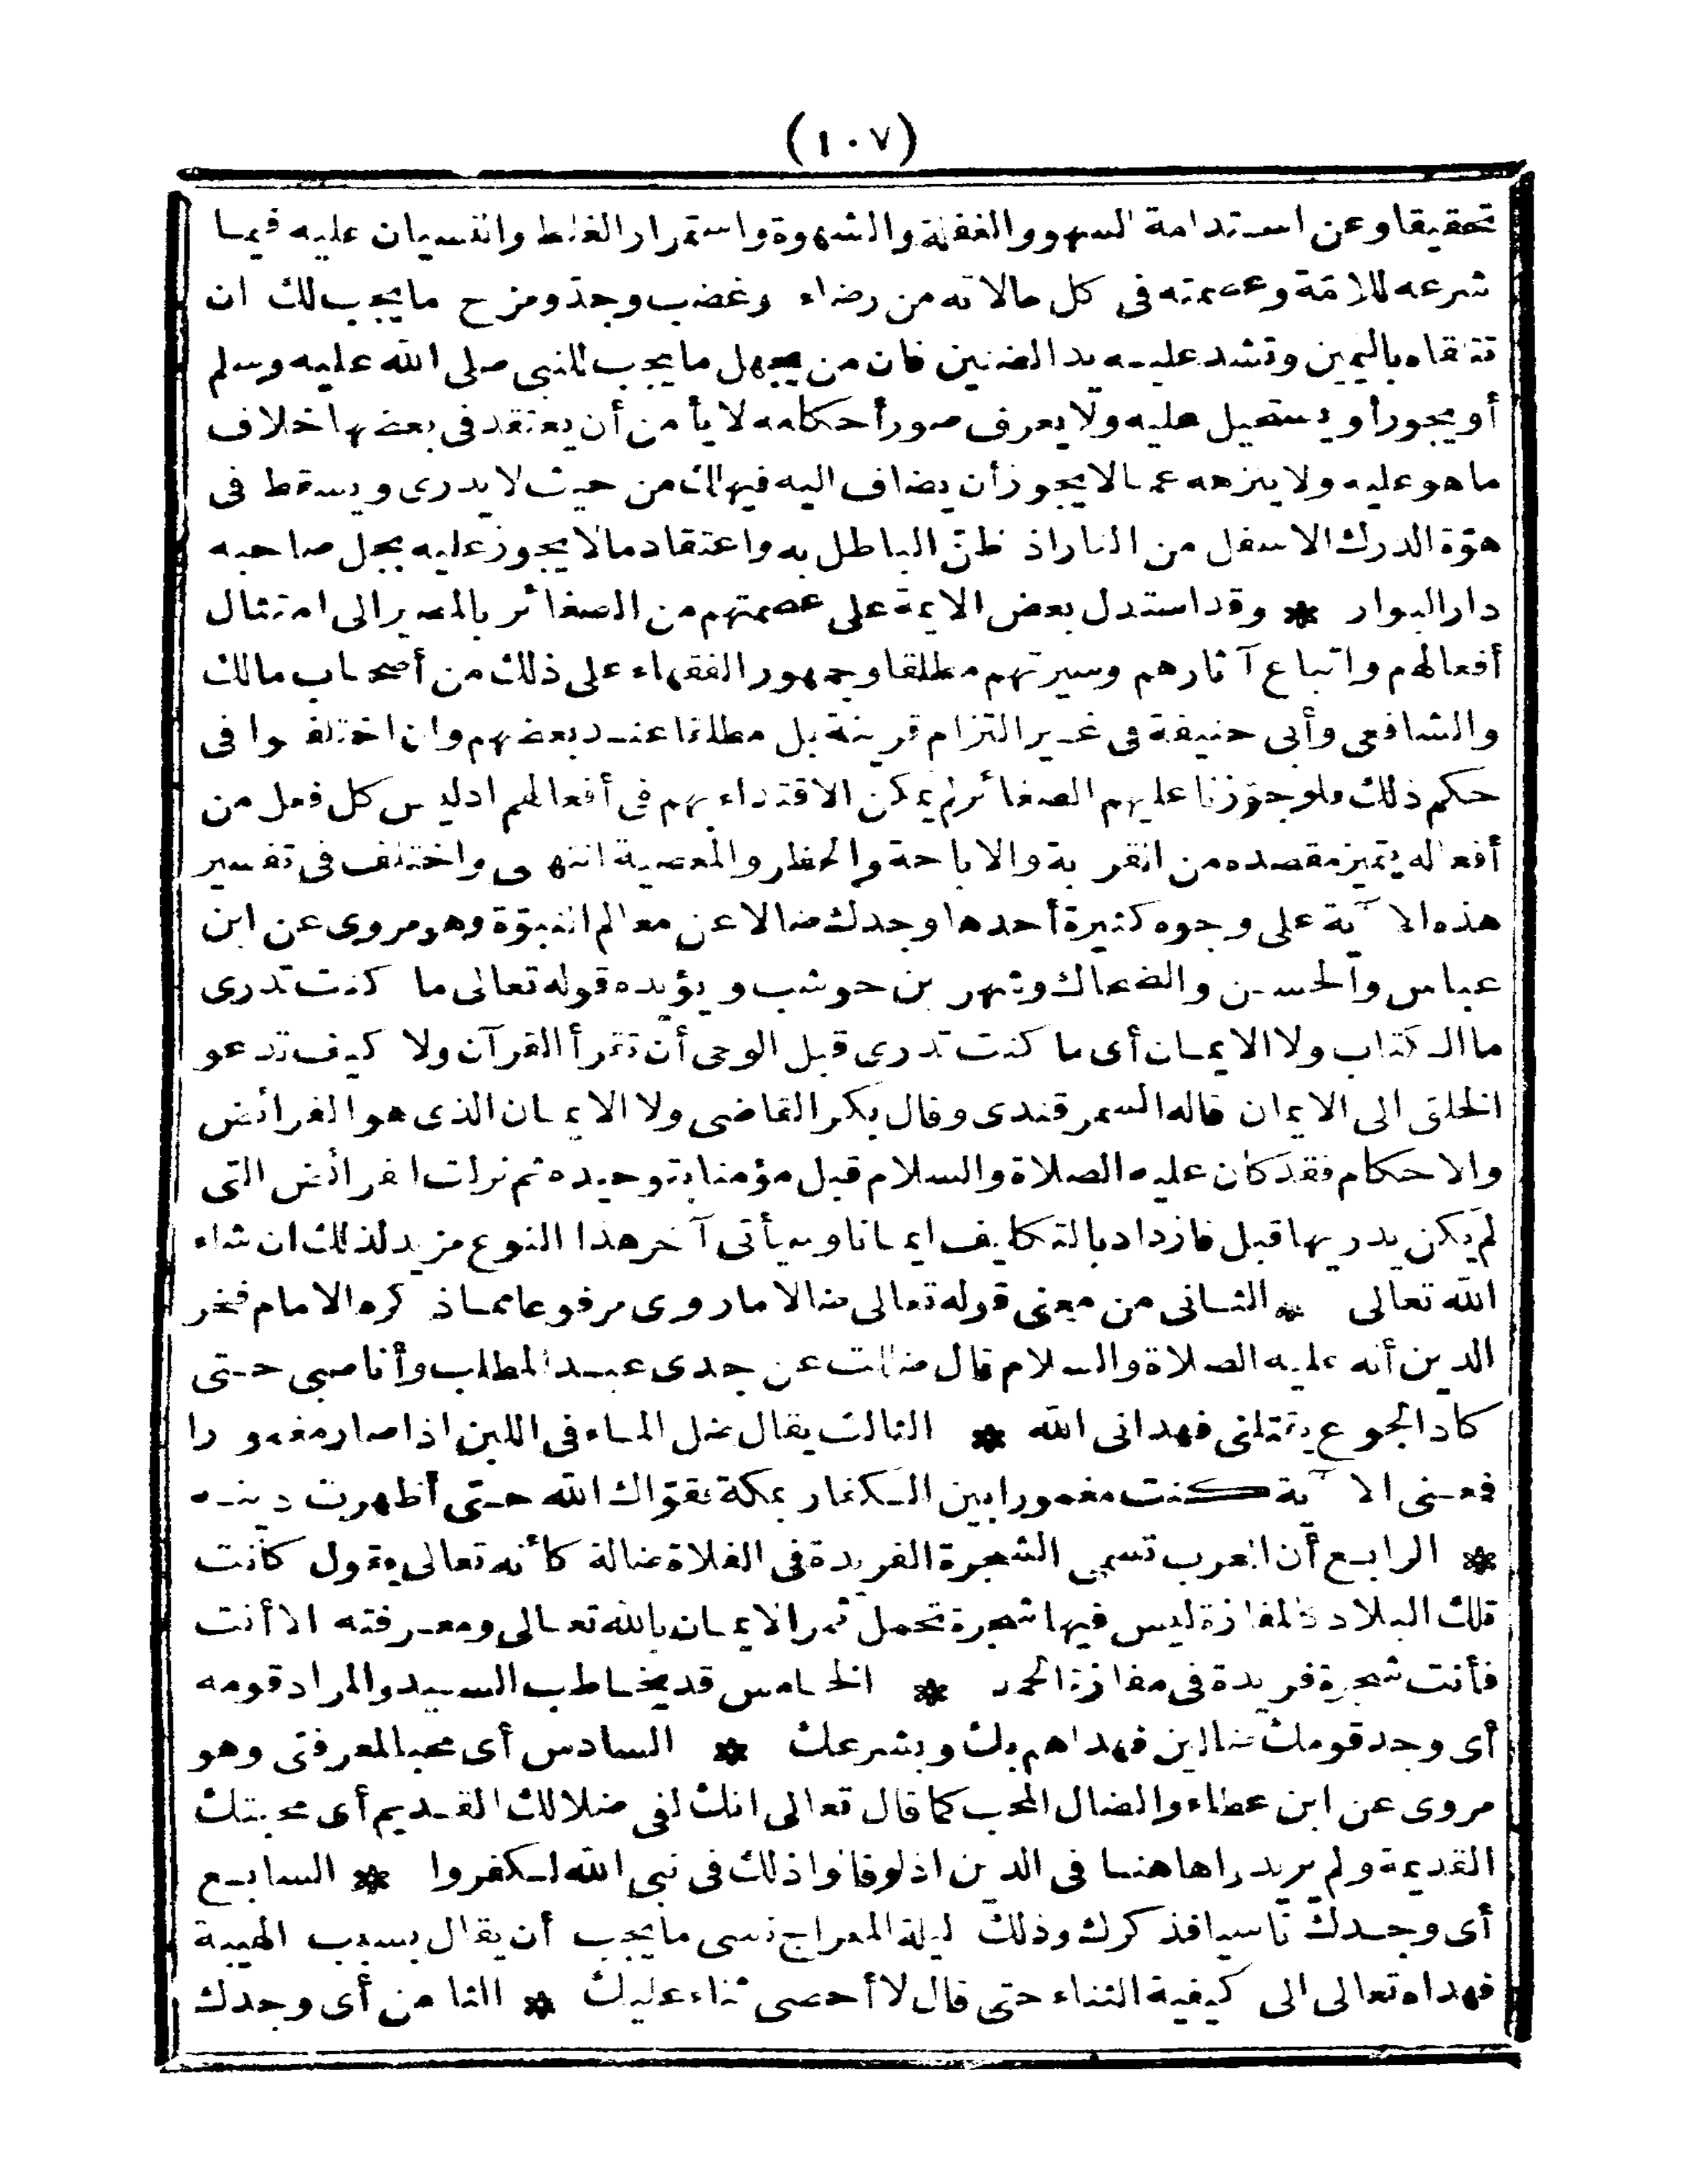 (١٠٧)
تحقيقا وعن استدامة السهو والغفلة والشهوة واستمرار الغلط والنسيان عليه فيما
شرعه للامّة وعصمته فى كل حالاته من رضاء وغضب وجدّ ومزح مايجب لك ان
تتلقاه باليمين وتشد عليه يد الضنين فان من يجهل مايجب للنبى صلى الله عليه وسلم
أويجوز أو يستحيل عليه ولا يعرف صور أحكامه لا يأمن أن يعتقد فى بعضها خلاف
ماهو عليه ولا ينزهه عما لا يجوز أن يضاف اليه فيهلك من حيث لا يدرى ويسقط فى
هوّة الدرك الاسفل من النار اذ ظنّ الباطل به واعتقاد مالا يجوز عليه يحل صاحبه
دار البوار * وقد استدل بعض الايمة على عصمتهم من الصغائر بالمصير الى امتثال
أفعالهم واتباع آثارهم وسيرتهم مطلقا وجمهور الفقهاء على ذلك من أصحاب مالك
والشافعى وأبى حنيفة فى غير التزام قرينة بل مطلقا عند بعضهم وان اختلفوا فى
حكم ذلك فلو جوّزنا عليهم الصغائر لم يمكن الاقتداء بهم فى أفعالهم اذ ليس كل فعل من
أفعاله يتميز مقصده من القربة والاباحة والحظر والمعصية انتهى واختلف فى تفسير
هذه الآية على وجوه كثيرة أحدها وجدك ضالا عن معالم النبوّة وهو مروى عن ابن
عباس والحسن والضحاك وشهر بن حوشب ويؤيده قوله تعالى ما كنت تدرى
ما الكتاب ولا الايمان أى ما كنت تدرى قبل الوحى أن تقرأ القرآن ولا كيف تدعو
الخلق الى الايمان قاله السمرقندى وقال بكر القاضى ولا الايمان الذى هو الفرائض
والاحكام فقد كان عليه الصلاة والسلام قبل مؤمنا بتوحيده ثم نزلت الفرائض التى
لم يكن يدريها قبل فازداد بالتكليف ايمانا وسيأتى آخر هذا النوع مزيد لذلك ان شاء
الله تعالى * الثانى من معنى قوله تعالى ضالا ماروى مرفوعا مماذكره الامام فخر
الدين أنه عليه الصلاة والسلام قال ضللت عن جدى عبد المطلب وأنا صبى حتى
كاد الجوع يقتلنى فهدانى الله * الثالث يقال ضل الماء فى اللبن اذا صار مغمورا
فمعنى الآية كنت مغمورا بين الكفار بمكة فقوّاك الله حتى أظهرت دينه
* الرابع أن العرب تسمى الشجرة الفريدة فى الفلاة ضالة كأنه تعالى يقول كانت
تلك البلاد كالمفازة ليس فيها شجرة تحمل ثمر الايمان بالله تعالى ومعرفته الا أنت
فأنت شجرة فريدة فى مفازة الحمد * الخامس قد يخاطب السيد والمراد قومه
أى وجد قومك ضالين فهداهم بك وبشرعك * السادس أى محبا لمعرفتى وهو
مروى عن ابن عطاء والضال المحب كما قال تعالى انك لفى ضلالك القديم أى محبتك
القديمة ولم يريدوا هاهنا فى الدين اذلو قالوا ذلك فى نبى الله لكفروا * السابع
أى وجدك ناسيا فذكرك وذلك ليلة المعراج نسى مايجب أن يقال بسبب الهيبة
فهداه تعالى الى كيفية الثناء حتى قال لا أحصى ثناء عليك * الثامن أى وجدك